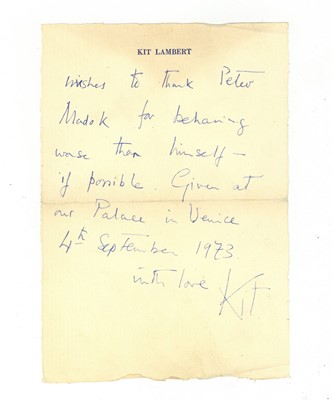 KIT LAMBERT
wishes to thank Peter
Madok for behaving
worse than himself –
if possible. Given at
our Palace in Venice
4th September 1973
with love Kit